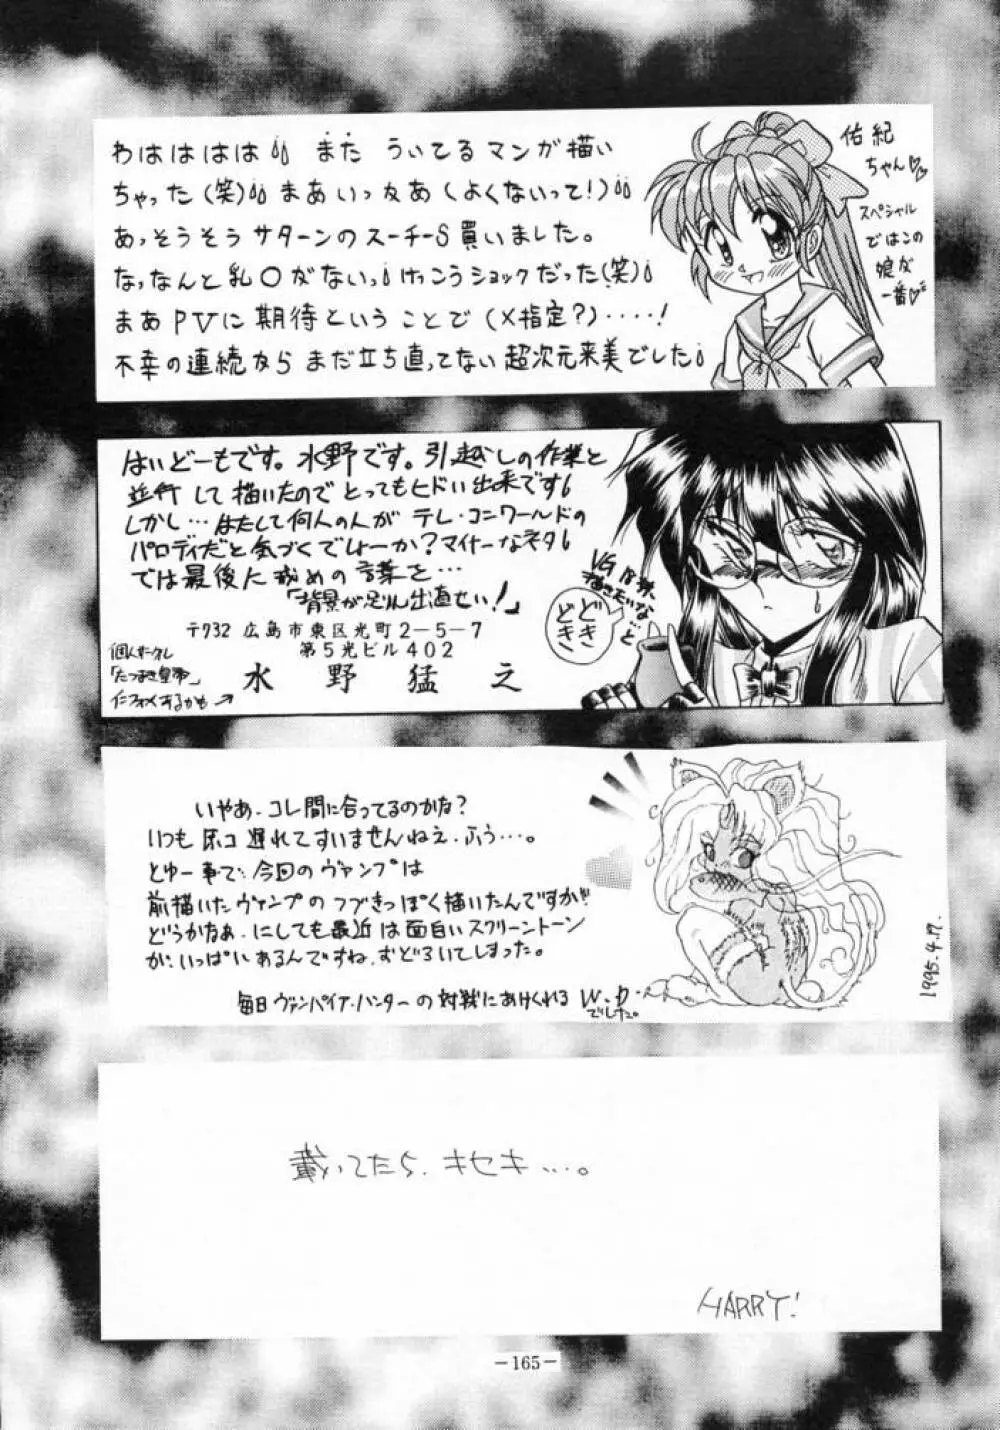 わはははは!! また ういてるマンガ描い
ちゃった(笑)!! まあいっなあ(よくないって!)!!
あっそうそうサターンのスーチーS買いました。
なっなんと乳〇がないっ!けっこうショックだった(笑)!
まあPVに期待ということで(X指定?)‥‥!
不幸の連続なら まだ立ち直ってない 超次元来美でした!
佑紀
ちゃん♡♡
スペシャル
ではこの
娘が
一番♡
はいどーもです。水野です。引越しの作業と
並行して描いたのでとってもヒドい出来です!
しかし…はたして何人の人がテレ・コンワールドの
パロディだと気づくでしょーか?マイナーなネタ!
では最後に戒めの言葉を…
「背景が足りん出直せい!」
〒732 広島市東区光町2-5-7
第5光ビル402
水野猛之
個人サークル
「たつまき皇帝」
インフォメするかも→
描きたいな…と
どき
どき
いやあ、コレ間に合ってるのかな?
いつも原コ遅れてすいませんねえ、ふう…。
とゆー事で、今回のヴァンプは
前描いたヴァンプのつづきっぽく描いたんですが!!
どうかなぁ、にしても最近は面白いスクリーントーン
が、いっぱいあるんですね、おどろいてしまった。
毎日ヴァンパイア・ハンターの対戦にあけくれるW.D
でした。
1995.4.17.
載ってたら、キセキ…。
HARRY!
—165—